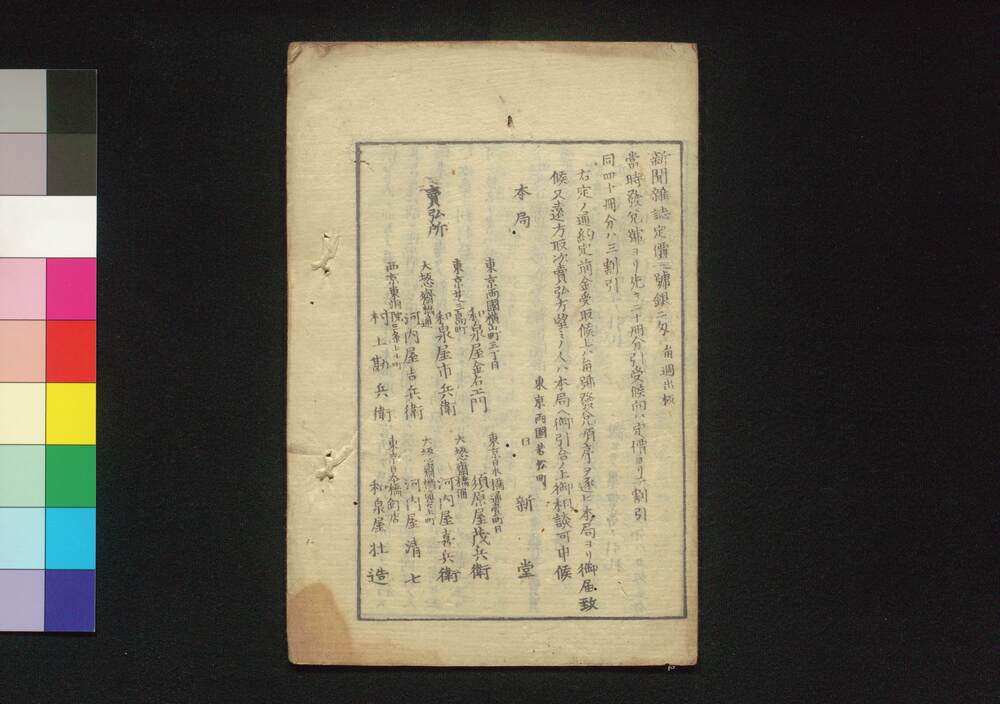 新聞雜誌定價一號銀二匁 每週出板
當時發兌號ヨリ先キ二十冊分引受候向ハ定價ヨリ一割引
同四十冊分ハ三割引
右定ノ通約定前金受取候上ハ每號發兌順序ヲ逐ヒ本局ヨリ御届致
候又遠方取次賣弘方望ミノ人ハ本局ヘ御引合ノ上御相談可申候
東京両國若松町
本局 日新堂
賣弘所
東京両國横山町三丁目
和泉屋金右エ門
東京日本橋通壹町目
須原屋茂兵衛
東京芝三島町
和泉屋市兵衛
大坂心齋橋通
河内屋喜兵衛
大坂心齋橋通
河内屋吉兵衛
大坂心齋橋通
河内屋清七
西京東洞院三条上ル町
村上勘兵衛
東京日本橋釘店
和泉屋壮造